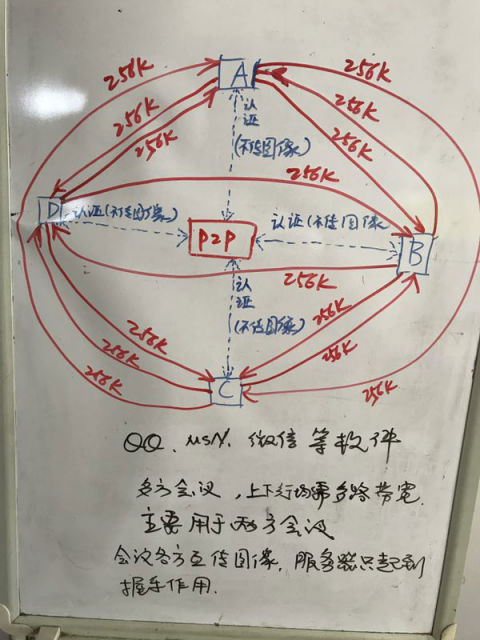 256K
A
256K
256K
256K
256K
256K
256K
认证
(不传图像)
256K
D
认证(不传图像)
P2P
认证(不传图像
B
256K
认证
(不传图像)
256K
256K
256K
256K
256K
C
256K
QQ、MSN、微信等软件
多方会议，上下行均需多路带宽.
主要用于两方会议
会议各方互传图像，服务器只起到
握手作用.